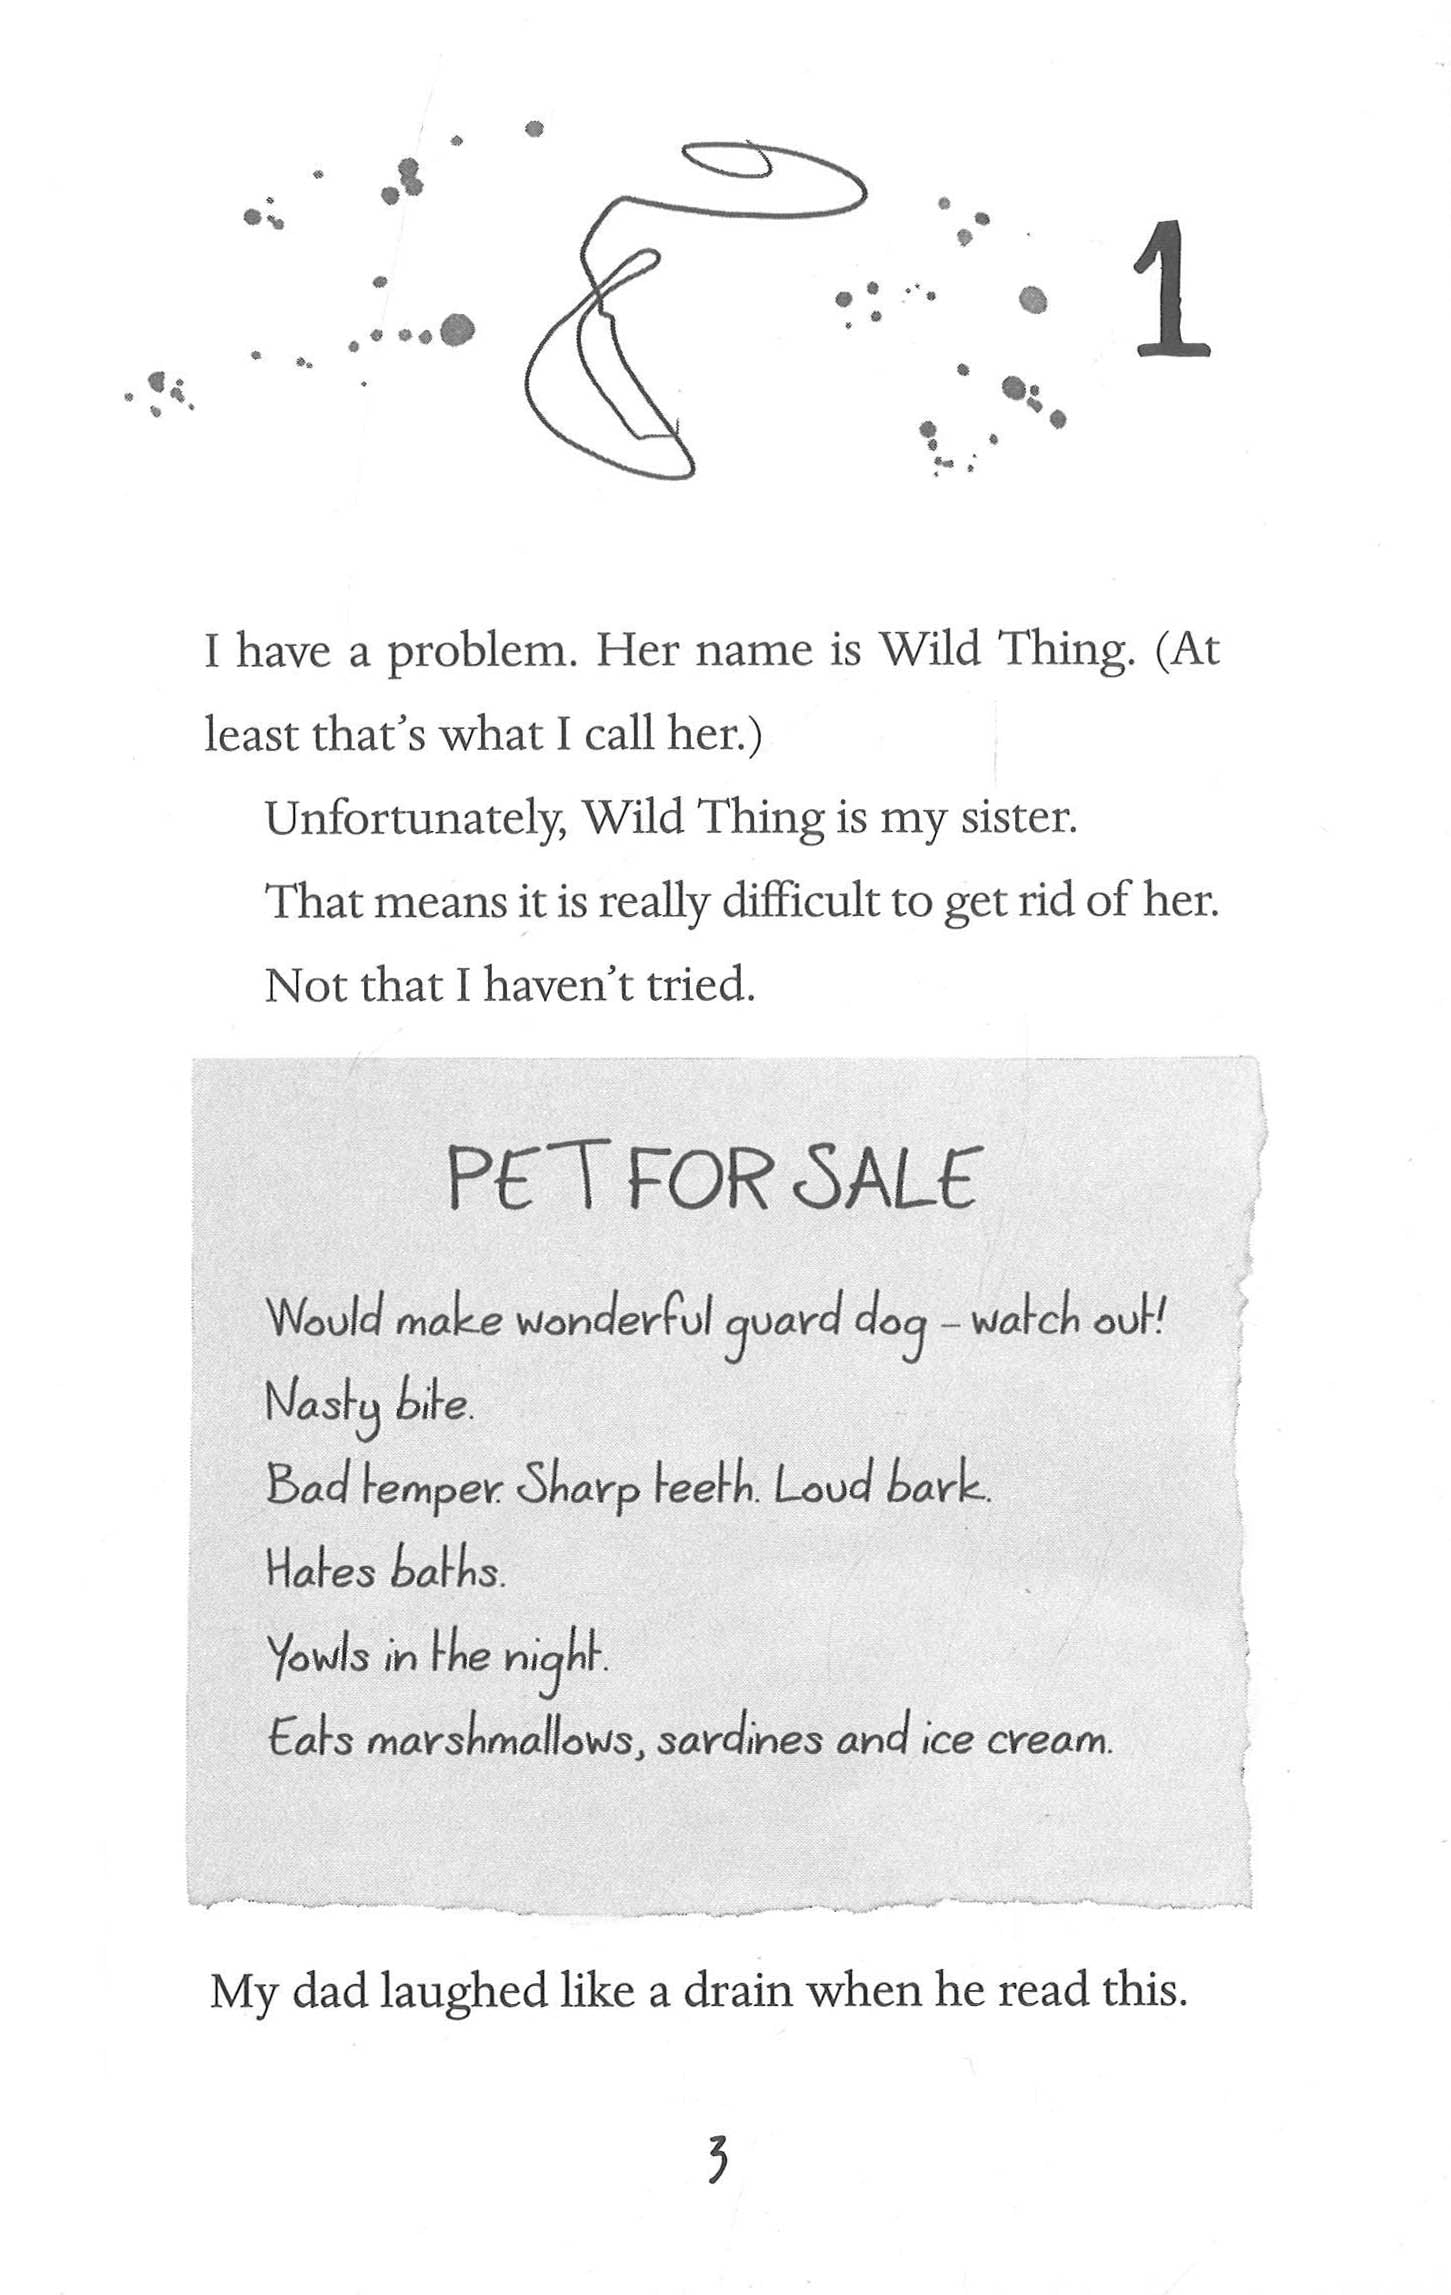 1
I have a problem. Her name is Wild Thing. (At
least that’s what I call her.)
Unfortunately, Wild Thing is my sister.
That means it is really difficult to get rid of her.
Not that I haven’t tried.
PET FOR SALE
Would make wonderful guard dog – watch out!
Nasty bite.
Bad temper. Sharp teeth. Loud bark.
Hates baths.
Yowls in the night.
Eats marshmallows, sardines and ice cream.
My dad laughed like a drain when he read this.
3